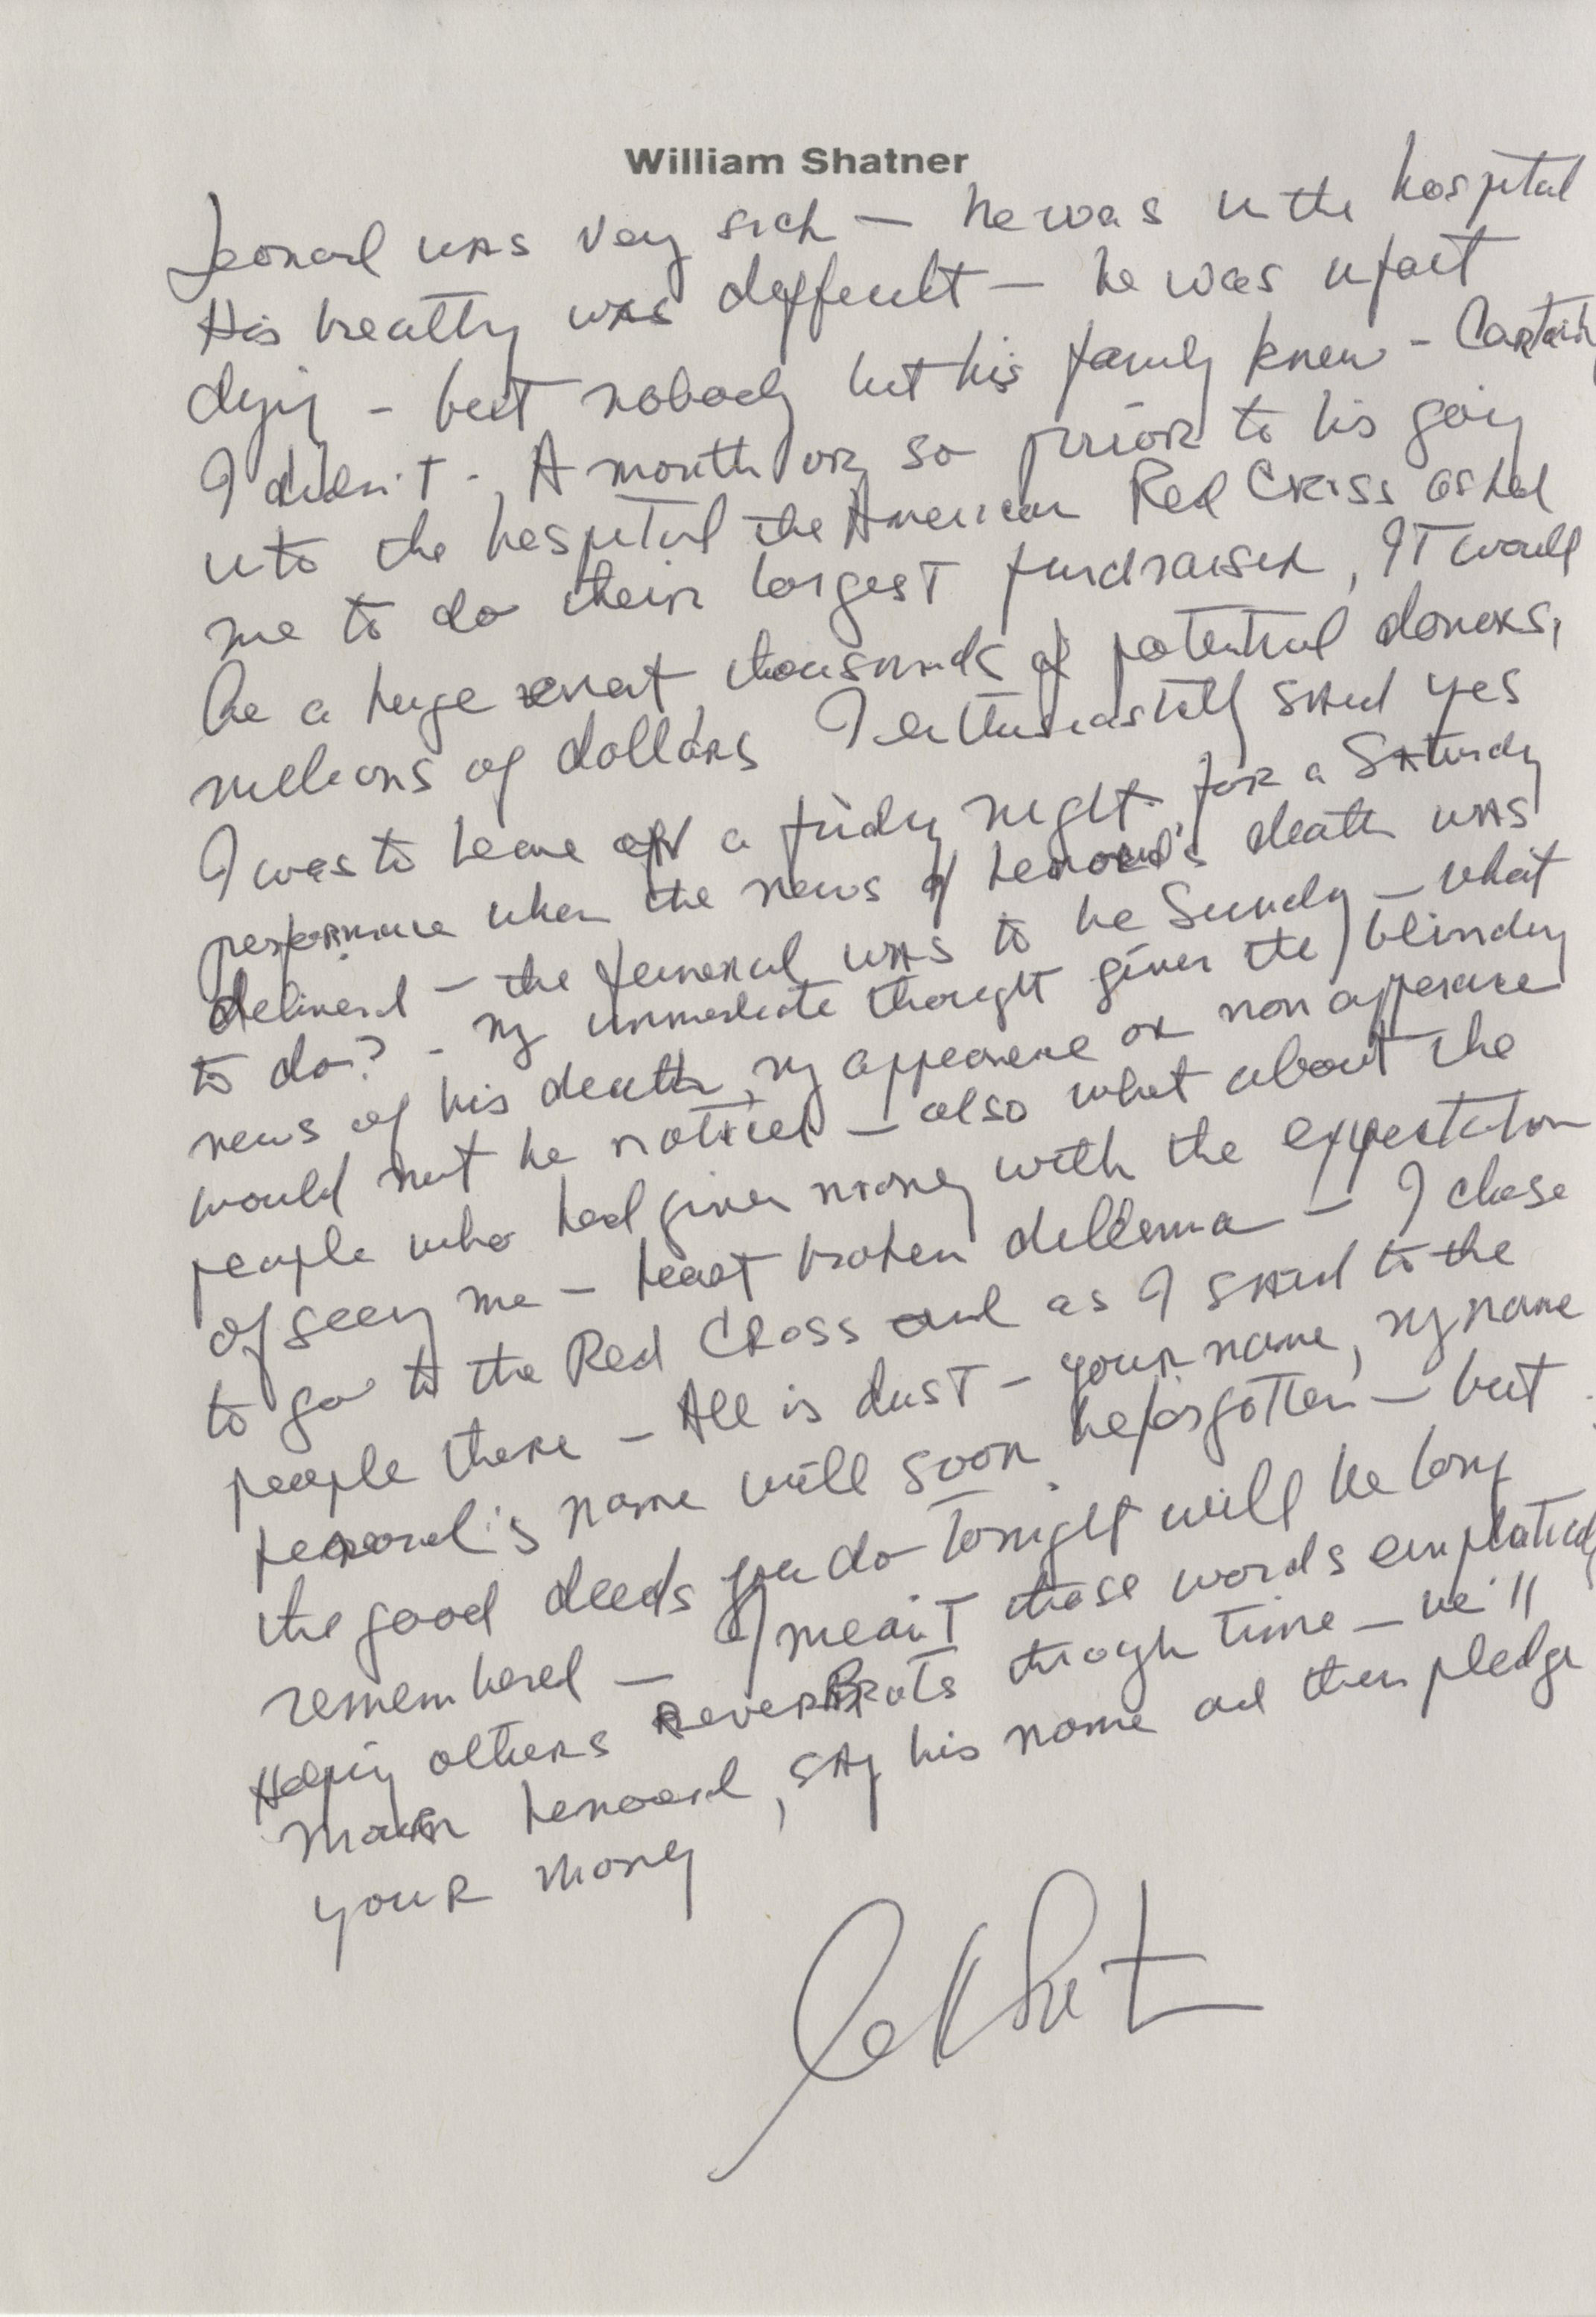 William Shatner
Leonard was very sick — he was in the hospital
His breathing was difficult — he was in fact
dying - but nobody but his family knew - Certainly
I didn't -, A month or so prior to his going
into the hospital the American Red Cross asked
me to do their largest fundraiser, IT would
be a huge event, thousands of potential donors,
millions of dollars I enthusiastically said yes
I was to leave on a friday night for a Saturday
performance when the news of Leonard's death was
delivered — the funeral was to be Sunday — what
to do? - my immediate thought given the blinding
news of his death, my appearance or non appearance
would not be noticed — also what about the
people who had given money with the expectation
of seeing me — heart broken dillema — I chose
to go to the Red Cross and as I said to the
people there — All is dust — your name, my name
Leonard's name will soon be forgotten — but
the good deeds you do tonight will be long
remembered — I meant those words emphatically
Helping others reverberates through time — we'll
mourn Leonard, say his name and then pledge
your money